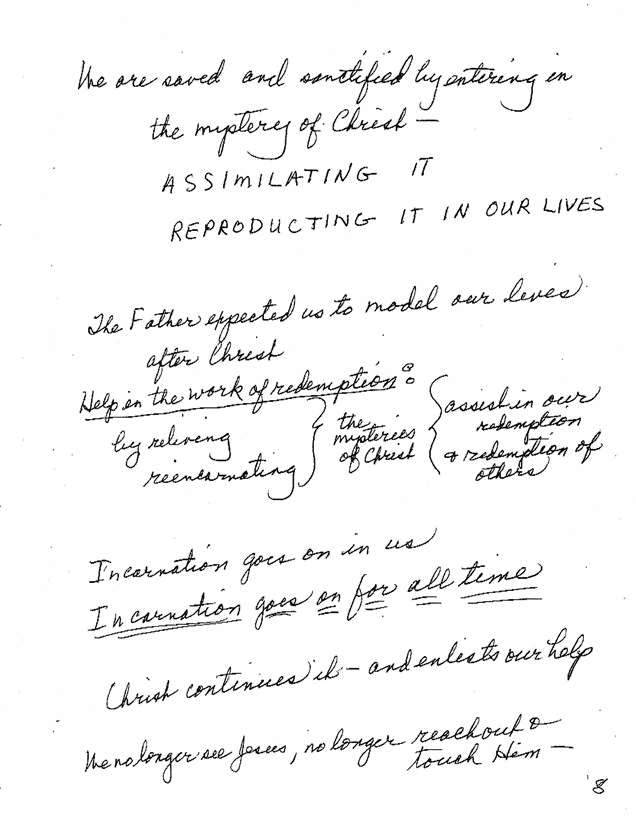 We are saved and sanctified by entering in
the mystery of Christ —
ASSIMILATING IT
REPRODUCTING IT IN OUR LIVES
The Father expected us to model our lives
after Christ
Help in the work of redemption:
by reliving
reencarnating } the mysteries of Christ { assist in our redemption
& redemption of others
Incarnation goes on in us
Incarnation goes on for all time
Christ continues it — and enlists our help
We no longer see Jesus, no longer reach out &
touch Him —
8